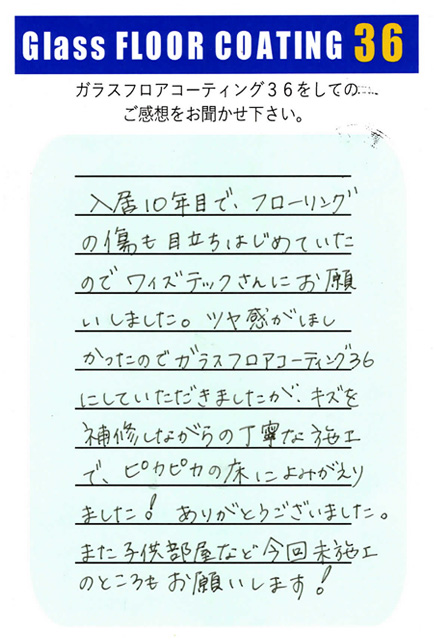 Glass FLOOR COATING 36
ガラスフロアコーティング36をしての
ご感想をお聞かせ下さい。
入居10年目で、フローリング
の傷も目立ちはじめていた
のでワイズテックさんにお願
いしました。ツヤ感がほし
かったのでガラスフロアコーティング36
にしていただきましたが、キズを
補修しながらの丁寧な施工
で、ピカピカの床によみがえり
ました！ありがとうございました。
また子供部屋など今回未施工
のところもお願いします！